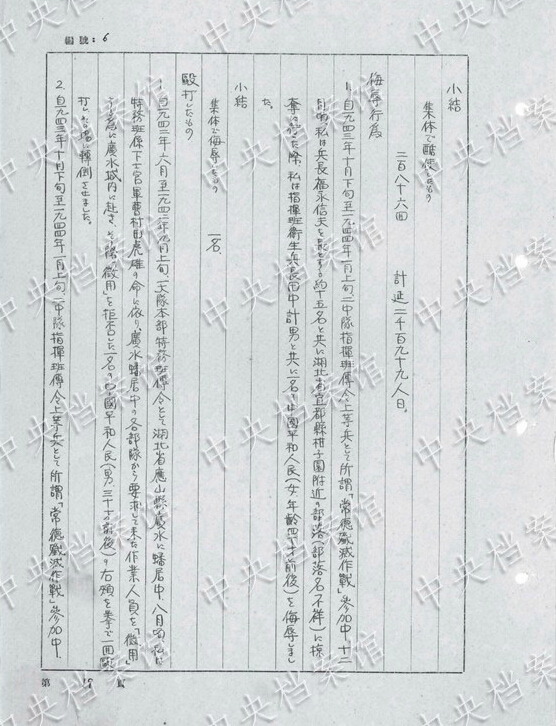 編號：6
小結
集体で酷使したもの
二百八十六回　計延二千百九十九人日。
侮辱行為
1. 自一九四三年十月下旬至一九四四年一月上旬、二中隊指揮班傳令上等兵として所謂「常德殲滅作戰」参加中、十二
月頃、私は兵長福永信夫を長とする約十五名と共に湖北省宜都縣柑子園附近の部落(部落名不祥)に掠
奪に行った際、私は指揮班衛生兵長田中計男と共に一名の中國平和人民(女、年齢四十才前後)を侮辱しまし
た。
小結
集体で侮辱したもの
一名
毆打したもの
1. 自一九四二年六月至一九四二年 月上旬、大隊本部特務班傳令として湖北省應山縣廣水に蟠居中、八月頃、私は
特務班傳下士官軍曹村 虎雄の命に依り、廣水蟠居中の各部隊から要求して来た作業人員を「徴用」
する為に廣水城内に赴き、その際「徴用」を拒否した一名の中國平和人民(男、三十才前後)の右頰を拳で一回毆
打しその場に轉倒させました。
2. 自一九四三年十月下旬至一九四四年一月上旬、二中隊指揮班傳令上等兵として所謂「常德殲滅作戰」参加中、
第 19 頁
中央档案馆